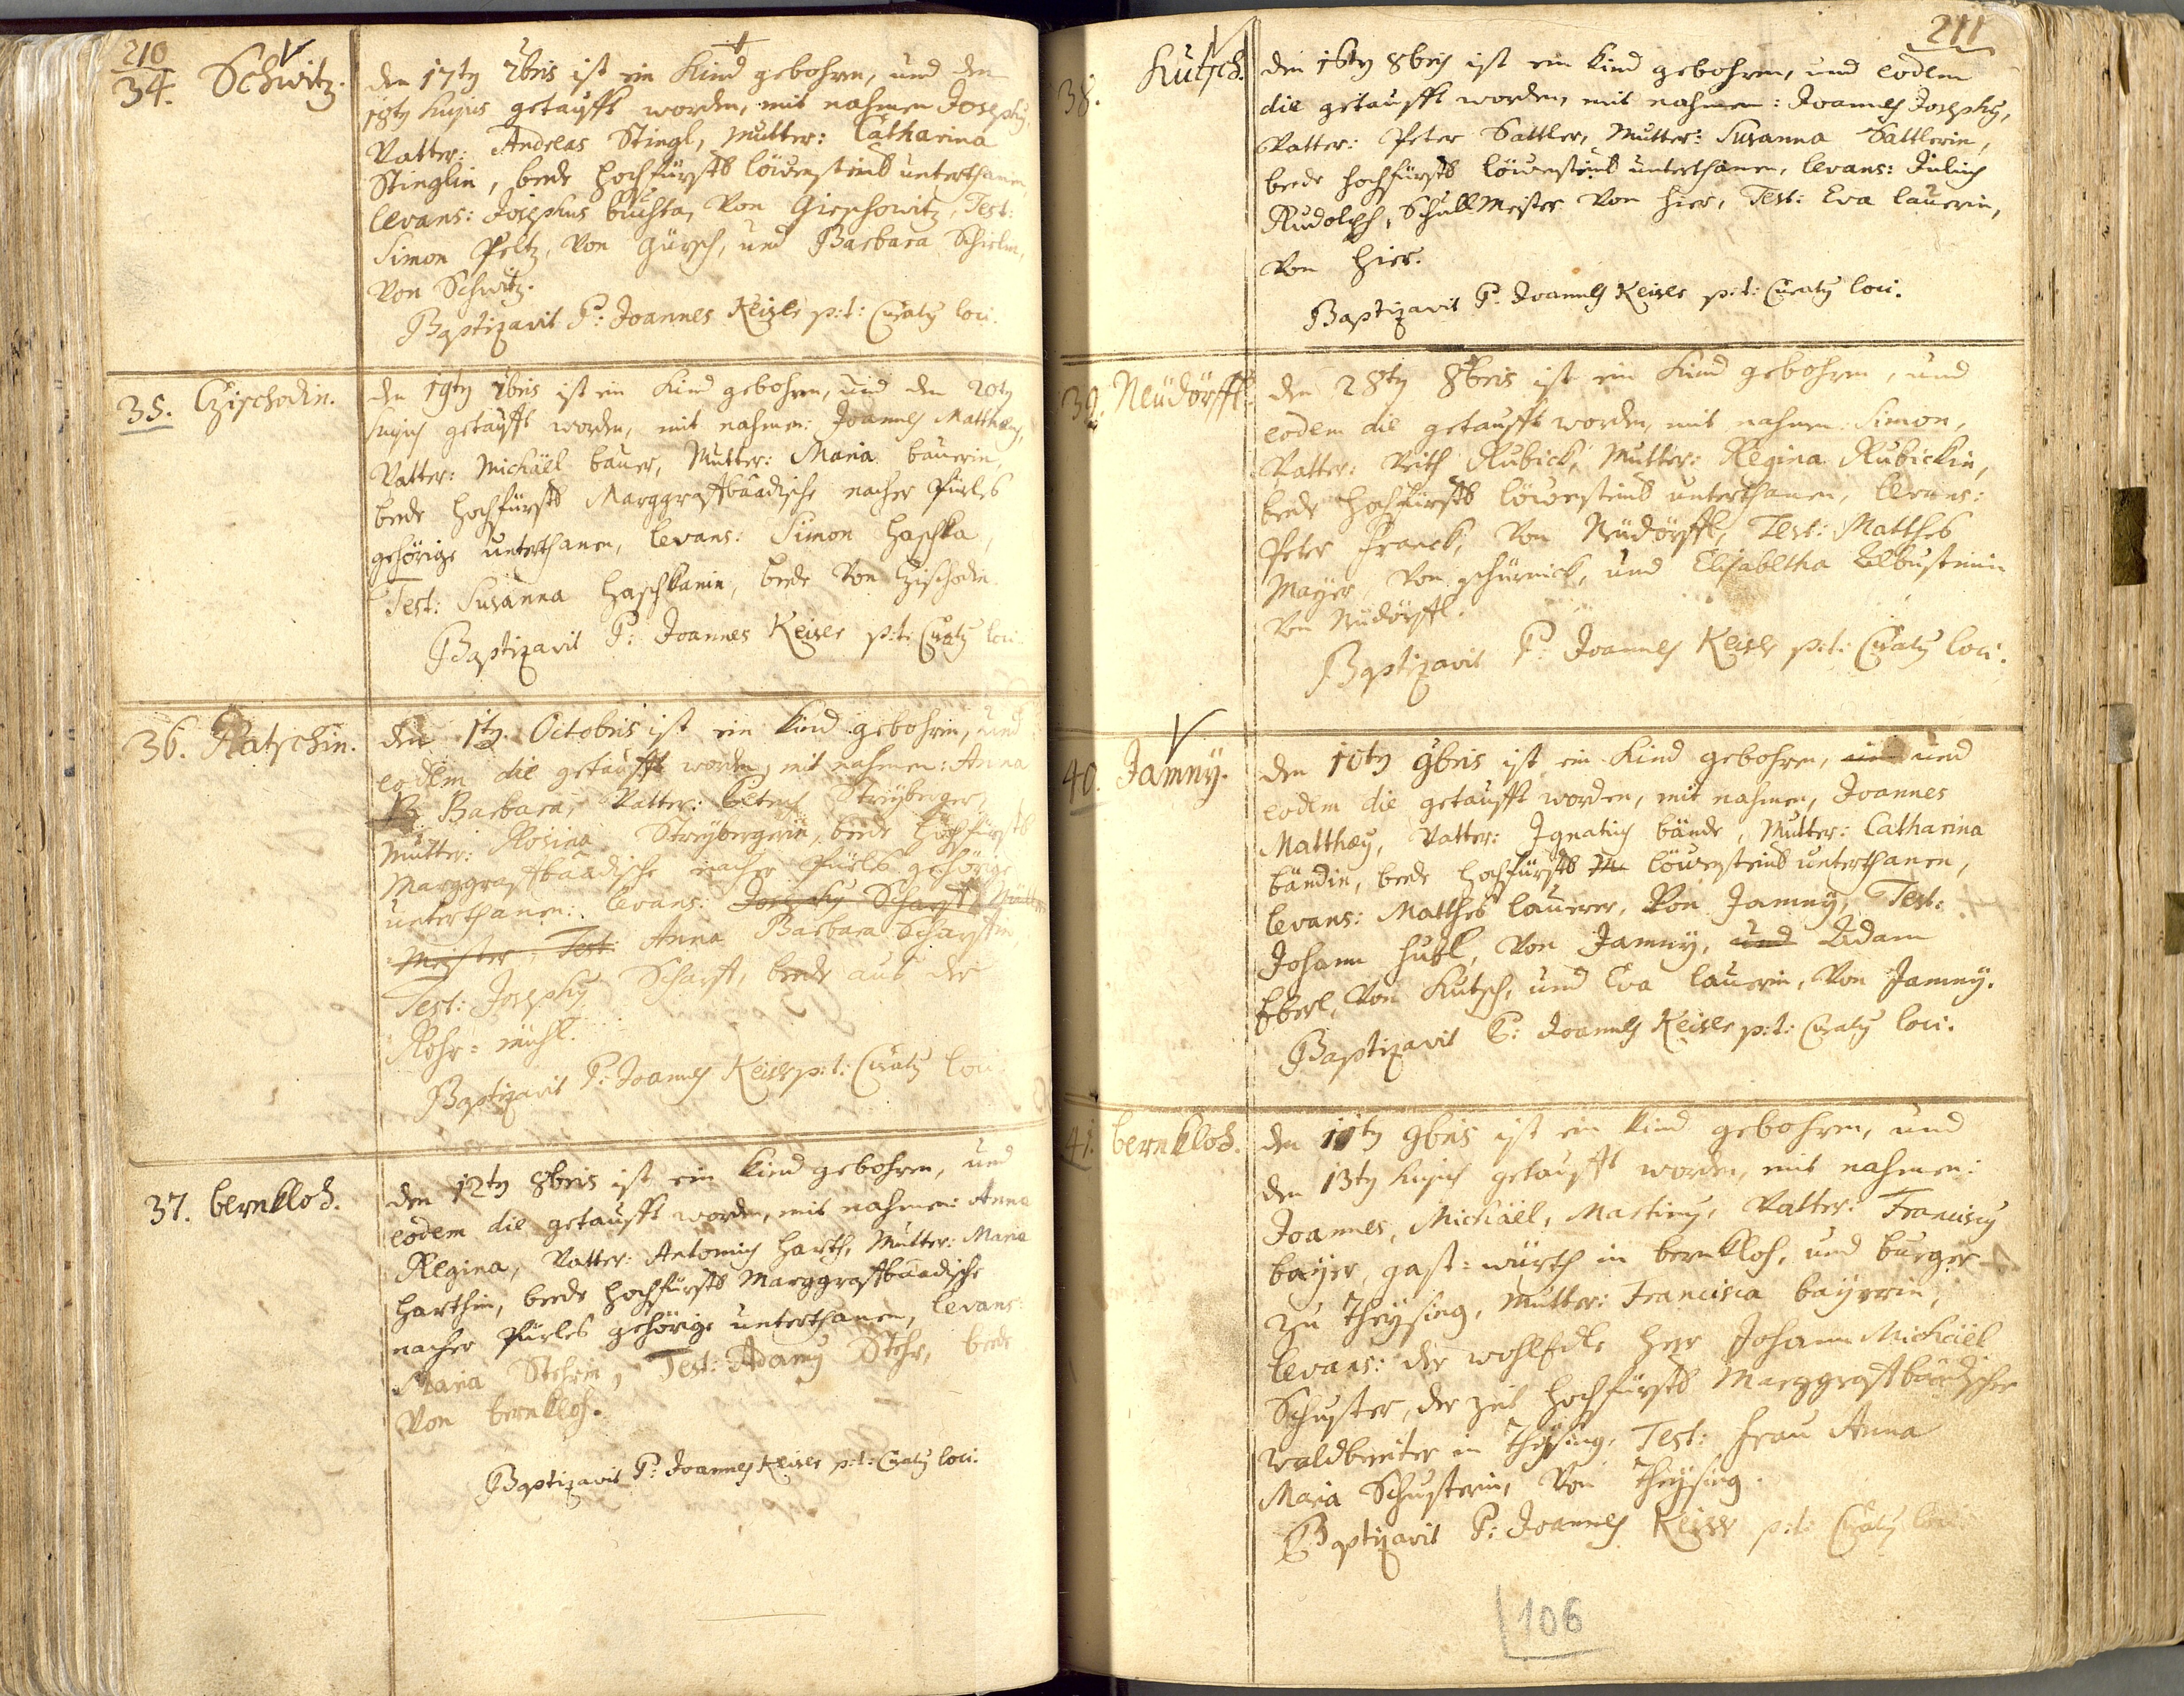 210
34. Schwitz.
den 17ty 7bris ist ein Kind gebohren, und den
18ty hujus getaufft worden, mit nahmen Josephy,
Vatter: Andreas Stingl, Mutter: Catharina
Stinglin, beede hochfürstl löwensteinl unterthanen,
levans: Josephus buchta, von Gieschowitz, Test:
Simon Peltz, von Gürsch, und Barbara
von Schwitz.
Baptizavit P: Joannes Keisle p:t: Curaty loci.
35. Czischodin.
den 19ty 7bris ist ein Kind gebohren, und den 20ty
hujus getaufft worden, mit nahmen: Joannes Matthæy,
Vatter: Michäel bauer, Mutter: Maria bauerin,
beede hochfürstl Marggraffbaadische nacher Pürles
gehörige unterthanen, levans: Simon haschka,
Test: Susanna haschkanin, beede von Czischodin.
Baptizavit P: Joannes Keisle p:t: Curaty loci.
36. Ratschin.
den 1ty Octobris ist ein Kind gebohren, und
eodem die getaufft worden, mit nahmen: Anna
Barbara, Vatter: Streyberger,
Mutter: Rosina Streybergerin, beede hochfürstl
Marggraffbaadische nacher Pürles gehörige
unterthanen: levans: Josephy Scharff
Meister, Test: Anna Barbara Scharffin
Test: Josephy Scharff, beede aus der
Rohr=mühl.
Baptizavit P: Joannes Keisle p:t: Curaty loci
37. bernkloh.
den 12ty 8bris ist ein Kind gebohren, und
eodem die getaufft worden, mit nahmen: Anna
Regina, Vatter: Antonius harth, Mutter: Maria
harthin, beede hochfürstl Marggraffbaadische
nacher Pürles gehörige unterthanen, levans:
Maria Stehrin, Test: Adamy Stehr, beede
von bernkloh.
Baptizavit P: Joannes Keisle p:t: Curaty loci.
211
38. Kutsch.
den 16ty 8bris ist ein Kind gebohren, und eodem
die getaufft worden, mit nahmen: Joannes Josephy,
Vatter: Peter Sattler, Mutter: Susanna Sattlerin,
beede hochfürstl löwensteinl unterthanen, levans: Julius
Rudolph, Schullmeister von hier, Test: Eva lauerin,
von hier.
Baptizavit P: Joannes Keisle p:t: Curaty loci.
39. Neüdörffl.
den 28ty 8bris ist ein Kind gebohren, und
eodem die getaufft worden, mit nahmen: Simon,
Vatter: Veith Rubick, Mutter: Regina Rubickin,
beede hochfürstl löwensteinl unterthanen, levans:
Peter Franck, von Neüdörffl, Test: Matthes
Mayer, von und Elisabetha
von Neüdörffl.
Baptizavit P: Joannes Keisle p:t: Curaty loci.
40. Jamny.
den 10ty 9bris ist ein Kind gebohren, und
eodem die getaufft worden, mit nahmen, Joannes
Matthæy, Vatter: Ignatius bände, Mutter: Catharina
bändin, beede hochfürstl löwensteinl unterthanen,
levans: Matthes lauerer, von Jamny, Test:
Johann hubl, von Jamny, und Adam
Eberl, von Kutsch, und Eva lauerin, von Jamny.
Baptizavit P: Joannes Keisle p:t: Curaty loci.
41. bernkloh.
den 11ty 9bris ist ein Kind gebohren, und
den 13ty hujus getaufft worden, mit nahmen:
Joannes, Michäel, Martiny, Vatter: Franciscy
bayer, gast=würth in bernkloh, und burger
zu Theysing, Mutter: Francisca bayerin,
levans: der wohlEdle herr Johann Michäel
Schuster, der zeit hochfürstl Marggraffbaadischer
waldbereiter in Theysing, Test: Frau Anna
Maria Schusterin, von Theysing.
Baptizavit P: Joannes Keisle p:t: Curaty loci
106